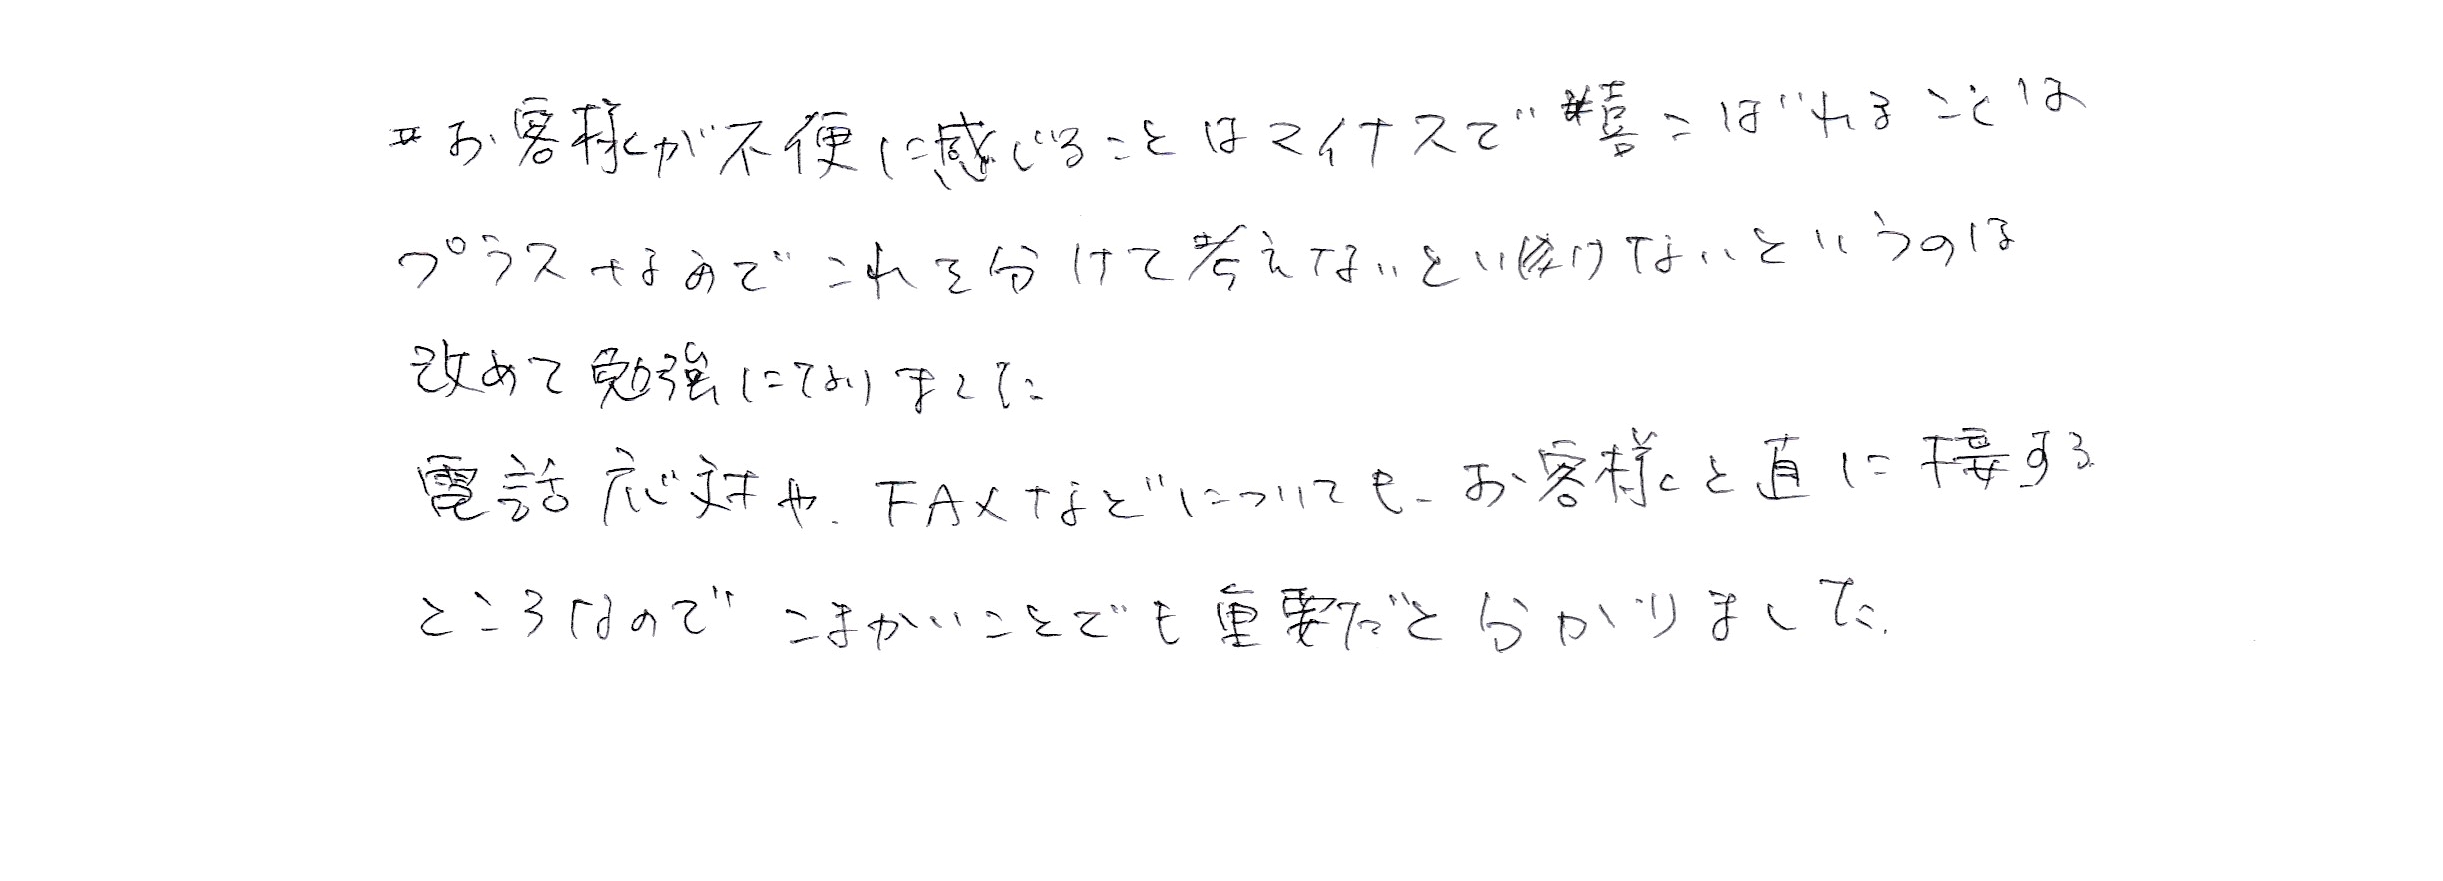 お客様が不便に感じることはマイナスで喜こばれることは
プラスなのでこれを分けて考えないといけないというのは
改めて勉強になりました
電話応対や、FAXなどについても、お客様と直に接する
ところなのでこまかいことでも重要だと分かりました。